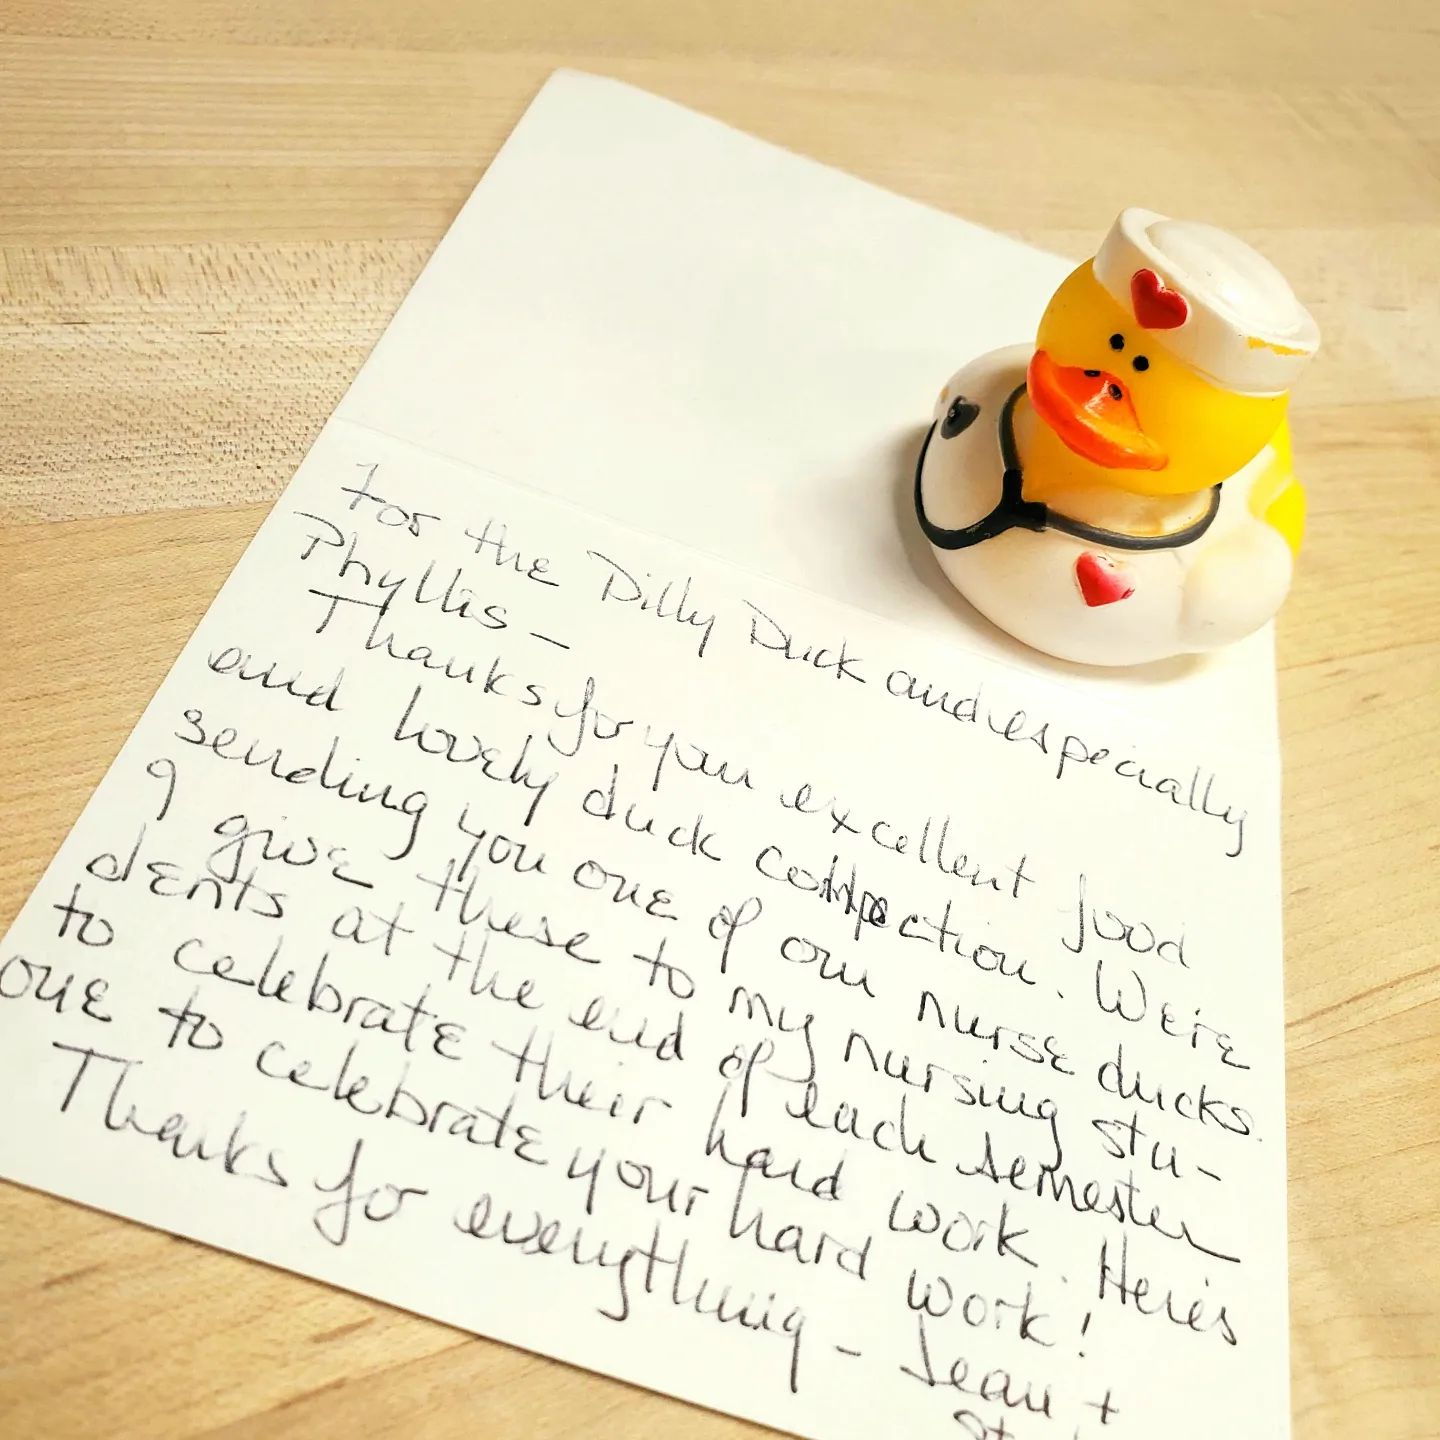 For the Dilly Duck and especially
Phyllis –
Thanks for your excellent food
and lovely duck collection. We're
sending you one of our nurse ducks.
I give these to my nursing stu-
dents at the end of each semester
to celebrate their hard work. Here's
one to celebrate your hard work!
Thanks for everything – Jean +